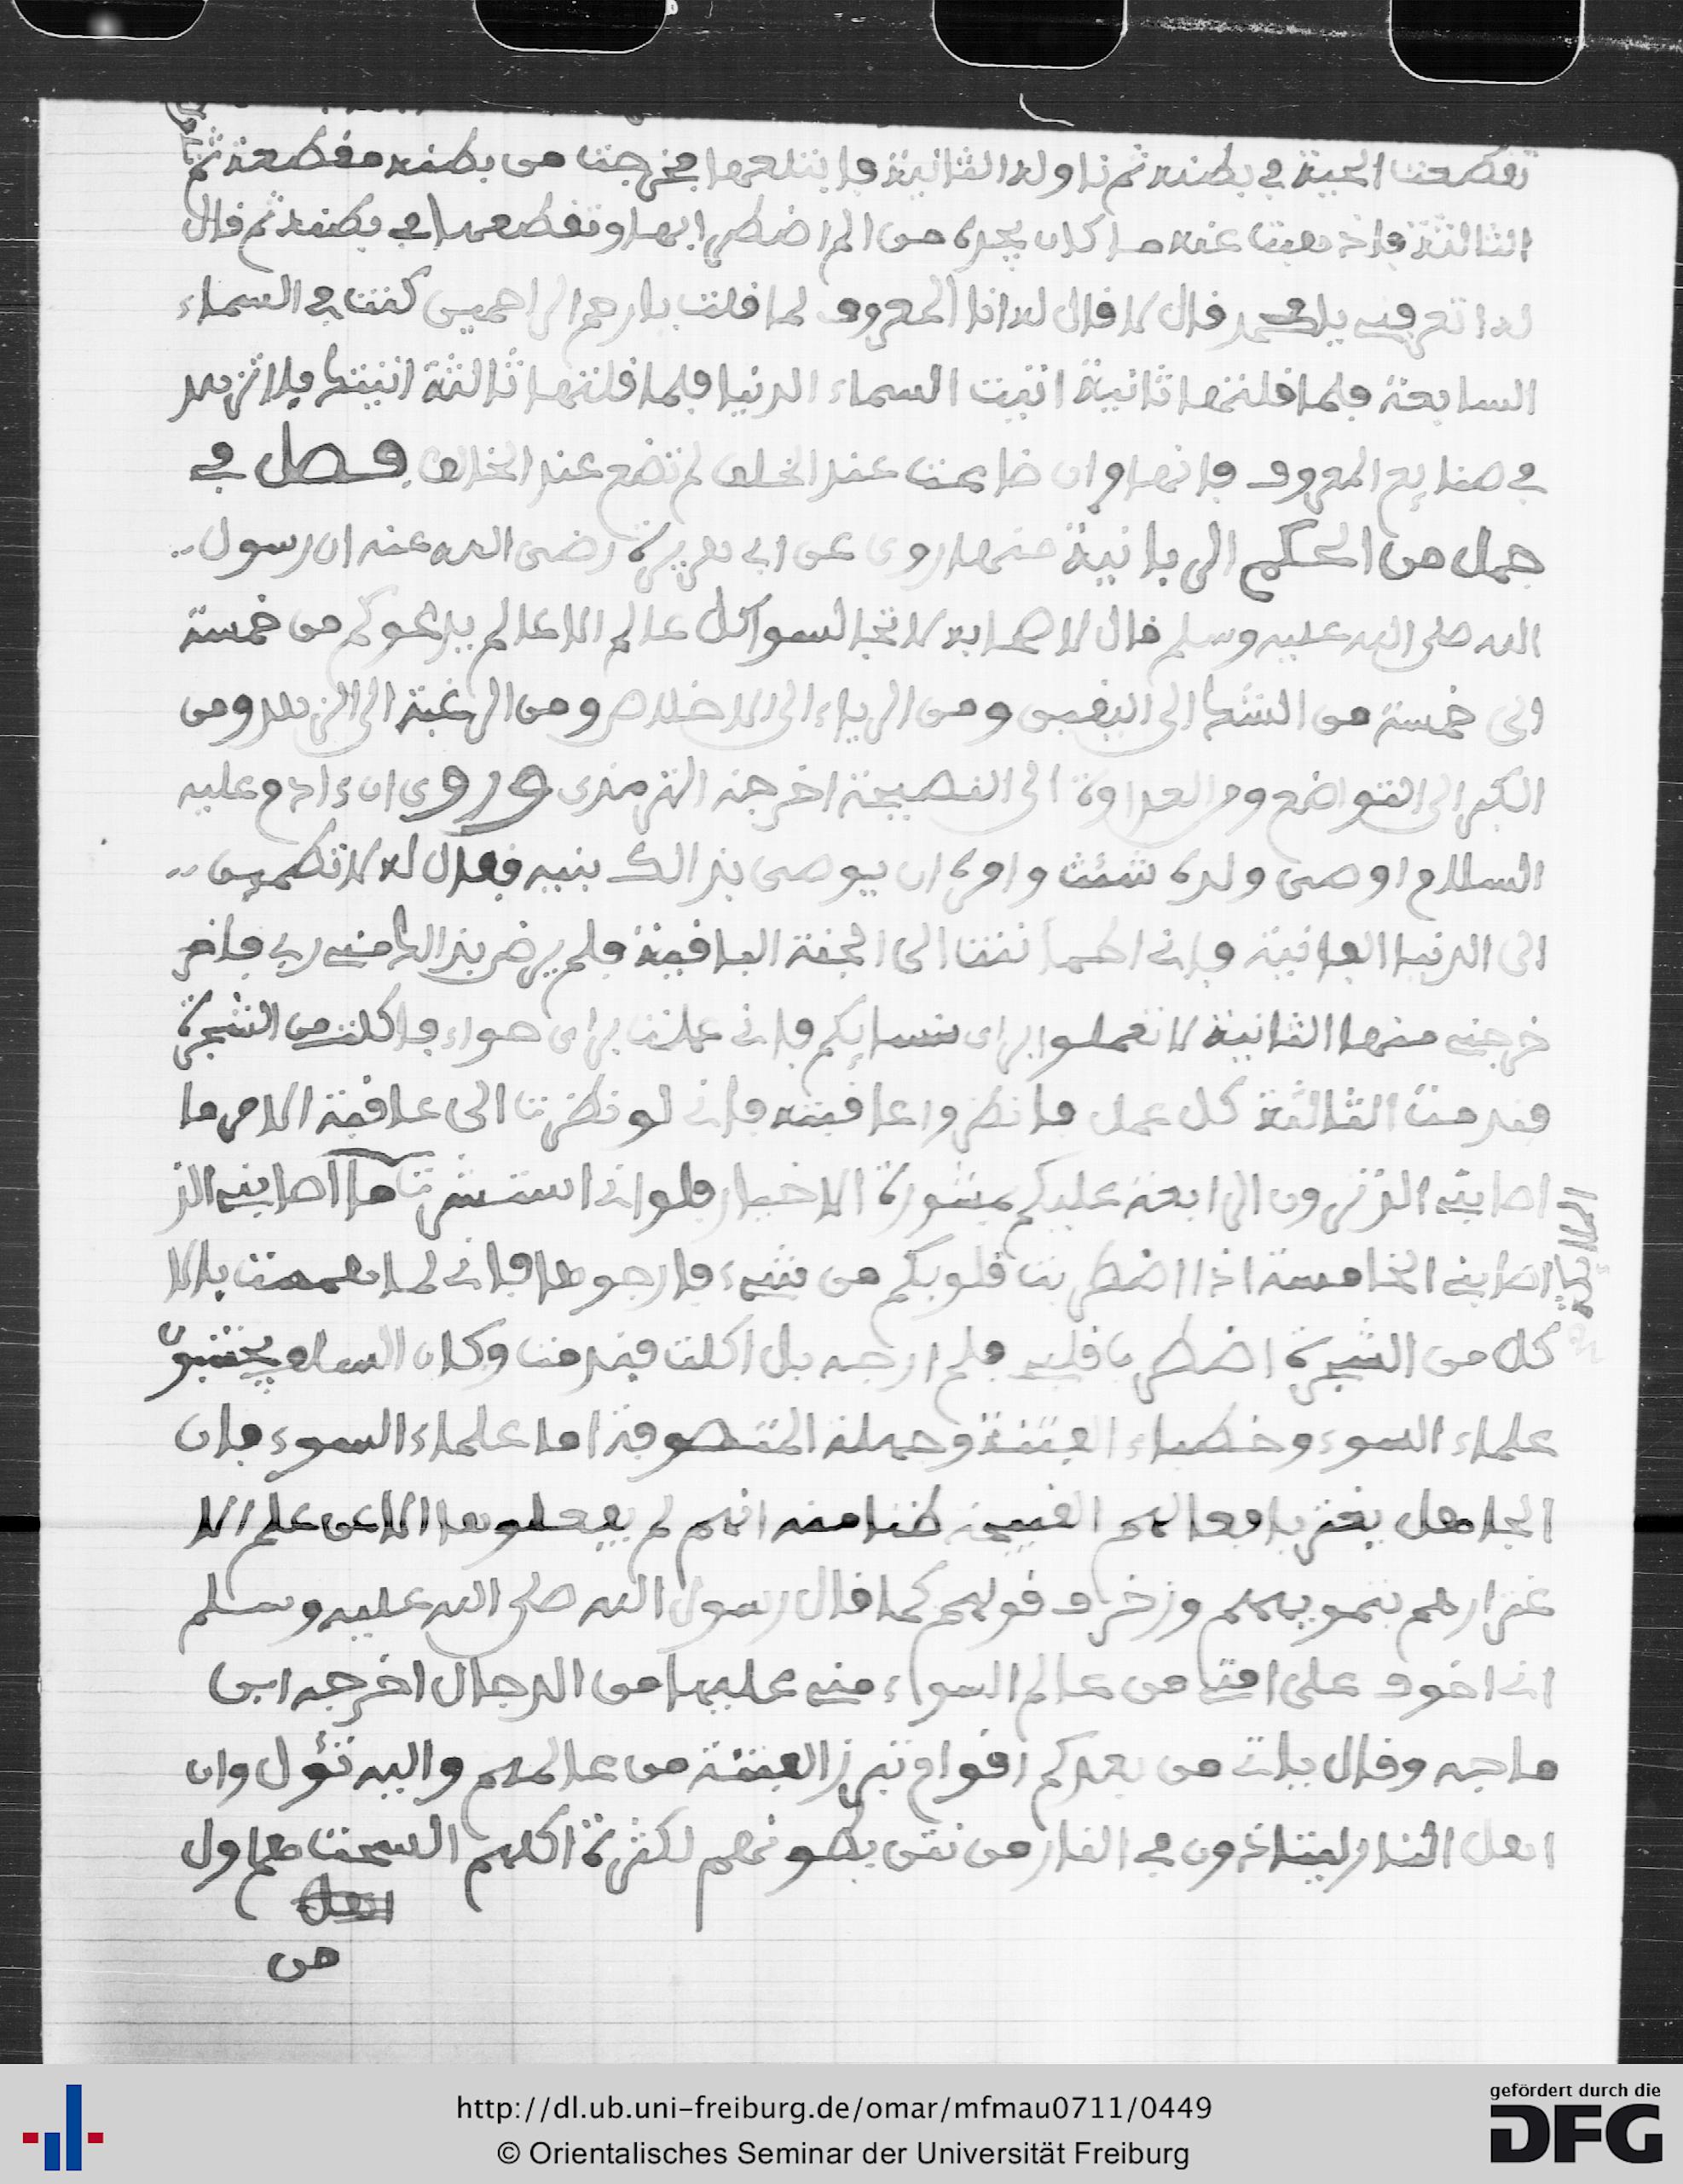 تقطعت الحية في بطنه ثم ناوله الثانية فابتلعها فخرجت من بطنه مقطعة ثم
الثالثة فاذهبت عنه ما كان يجده من الم اضطرابها وتقطعها في بطنه ثم قال
له اتعرفني يا محمد قال لا قال له انا المعروف لما قلت يا ارحم الراحمين كنت في السماء
السابعة فلما قلتها ثانية اتيت السماء الدنيا فلما قلتها ثالثة اتيتك فلا تزهد
في صنايع المعروف فانها وان ضاعت عند الخلق لم تضع عند الخالق فصل في
جمل من الحكم الربانية منها روى عن ابي هريرة رضى الله عنه ان رسول
الله صلى الله عليه وسلم قال لاصحابه لا تجالسوا كل عالم الا عالم يدعوكم من خمسة
الى خمسة من الشك الى اليقين ومن الرياء الى الاخلاص ومن الرغبة الى الزهد ومن
الكبر الى التواضع ومن العداوة الى النصيحة اخرجه الترمذى وروى ان ءادم عليه
السلام اوصى ولده شئث وامره ان يوصى بذالك بنيه فقال له لا تطمئن
الى الدنيا الفانية فاني اطمأننت الى الجنة الباقية فلم يرض بذالك مني ربي فاخر
خرجني منها الثانية لا تعملوا براى نسايكم فاني عملت براى حواء فاكلت من الشجرة
فندمت الثالثة كل عمل فانظروا عاقبته فاني لو نظرت الى عاقبة الامر ما
اصابني الذ ترون الرابعة عليكم بمشورة الاخيار فلو اني استشرت ما اصابني الذ
اصابني الخامسة اذا اضطربت قلوبكم من شيء فارجوها فاني لما هممت بالا
كل من الشجرة اضطرب قلبي فلم ارجه بل اكلت فندمت وكان السلف يخشون
علماء السوء وخطباء الفتنة وجهلة المتصوفة اما علماء السوء فان
الجاهل يغتر بافعالهم القبيحة ظنا منه انهم لم يفعلوها الا عن علم الا
غترارهم بتمويههم وزخرف قولهم كما قال رسول الله صلى الله عليه وسلم
اني اخوف على امتي من عالم السواء مني عليها من الدجال اخرجه ابن
ماجه وقال ياتي من بعدكم اقوام تبرز الفتنة من عالمهم واليه تؤل وان
اهل النار ليتاذون في النار من نتن بطونهم لكثرة اكلهم السحت
من
http://dl.ub.uni-freiburg.de/omar/mfmau0711/0449
© Orientalisches Seminar der Universität Freiburg
gefördert durch die
DFG